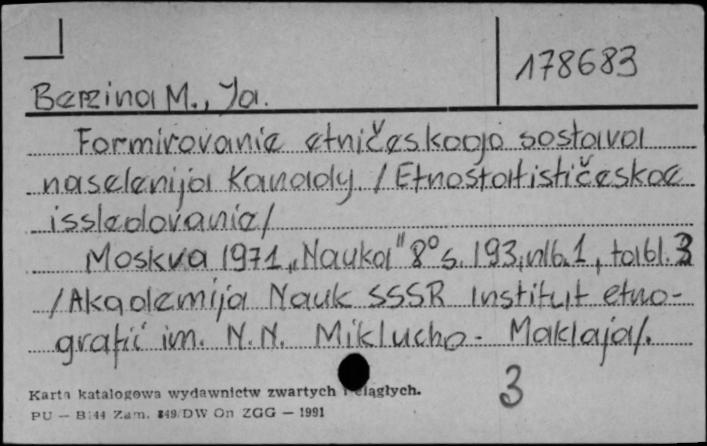 178683
Berzina M., Ja.
Formirovanie etničeskogo sostava
naselenija Kanady. / Etnostatističeskoe
issledovanie/
Moskva 1971 „Nauka" 8° s. 193, nlb. 1, tabl. 3
/Akademija Nauk SSSR Institut etno-
grafii im. N.N. Miklucho- Maklaja/.
3
Karta katalogowa wydawnictw zwartych i ciągłych.
PU — B/44 Zam. 849/DW On ZGG — 1991